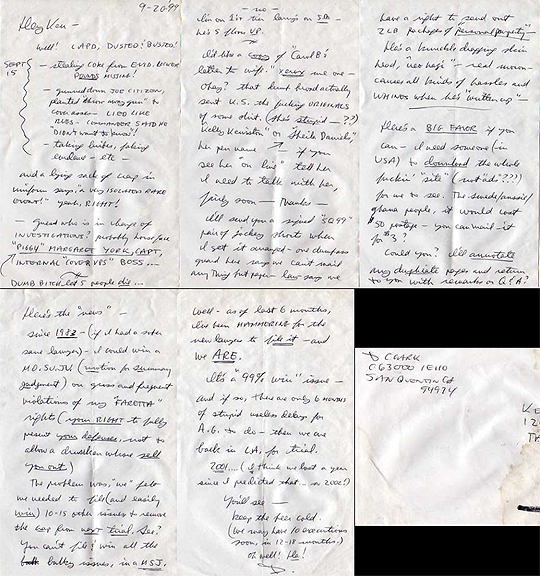 9-20-99
Hey Ken —
Well! LAPD, DUSTED! BUSTED!
SEPT 15
— stealing COKE from EVID. LOCKER
POUNDS MISSING!
— gunned down JOE CITIZEN,
planted throw away gun" to
cover — LIED LIKE
RUGS — COMMANDER SAID HE
"DIDN'T want to pursue"!
— taking bribes, faking
evidence — etc —
and a lying sack of crap in
uniform says, "a very ISOLATED RARE
EVENT!" yeah, RIGHT!
— guess who is in charge of
INVESTIGATIONS? probably horse face
"PIGGY" MARGARET YORK, CAPT,
INTERNAL "COVER UPS" BOSS...
DUMB BITCH let 5 people die...
— no —
he's 5 floors UP.
I'd like a copy of "Carol B's
letter to wife." xerox me one —
Okay? that broad actually
sent U.S. the fucking ORIGINALS
of some shit. (she's stupid — ??)
Kelly Keniston" or "Sheila Daniels,"
her pen name — if you
see her "on line" tell her
I need to talk with her,
fairly soon — Thanks —
I'll send you a signed "SQ99"
pair of jockey shorts when
I get it arranged — one dumbass
guard here says we can't mail
anything but paper — law says we
have a right to send out
2 LB packages of personal property" —
He's a skin
head, "neo nazi" — real moron —
causes all kinds of hassles and
WHINES when he's "written up" —
Here's a BIG FAVOR if you
can — I need someone (in
USA) to download the whole
fuckin' "site" (not "ads"???)
for me to see. The swede/aussie/
ghana people, it would cost
$30 postage — you can mail it
for $3?
Could you? I'll annotate
any duplicate pages and return
to you with remarks or Q & A!
Here's the "news" —
since 1983 — (if I had a sober
sane lawyer) — I could win a
MO.SUJU (motion for summary
judgment) on gross and flagrant
violations of my "FARETTA"
rights (your RIGHT to fully
present your defenses, not to
allow a drunken whore sell
you out)
The problem was, "we" felt
we needed to file (and easily
win) 10-15 other issues to remove
the from next trial. See?
You can't file & win all the
bulky issues, in a MSJ.
Well — as of last 6 months,
I've been HAMMERING for the
new lawyer to file it — and
we ARE.
It's a "99% win" issue —
and if so, there are only 6 months
of stupid useless delays for
A.G. to do — then we are
back in LA. for trial.
2001.... (I think we lost a year
since I predicted that — or 2002?)
You'll see —
keep the beer cold.
(We may have 10 executions
soon, in 12-18 months.)
Oh well! Ha!
D CLARK
C63000 1E110
SAN QUENTIN CA
94974